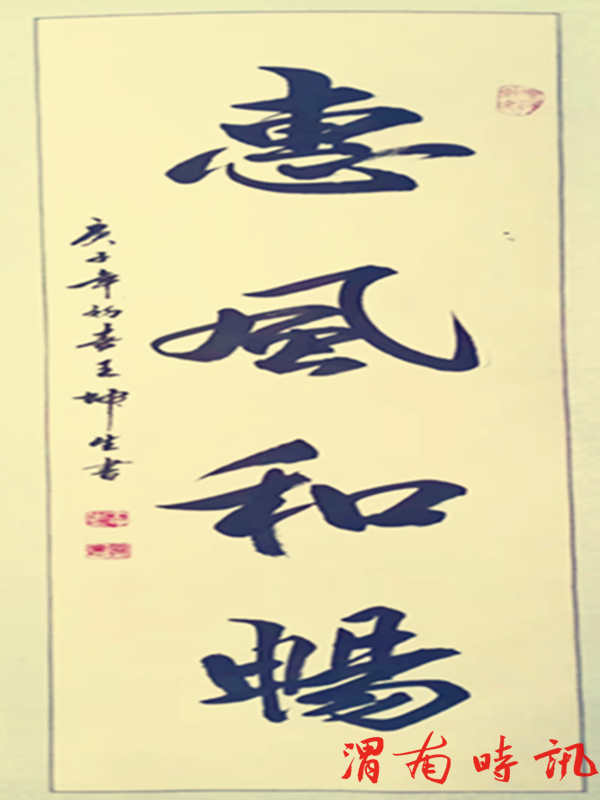 惠風和暢
庚子年初春王坤生書
渭南時訊